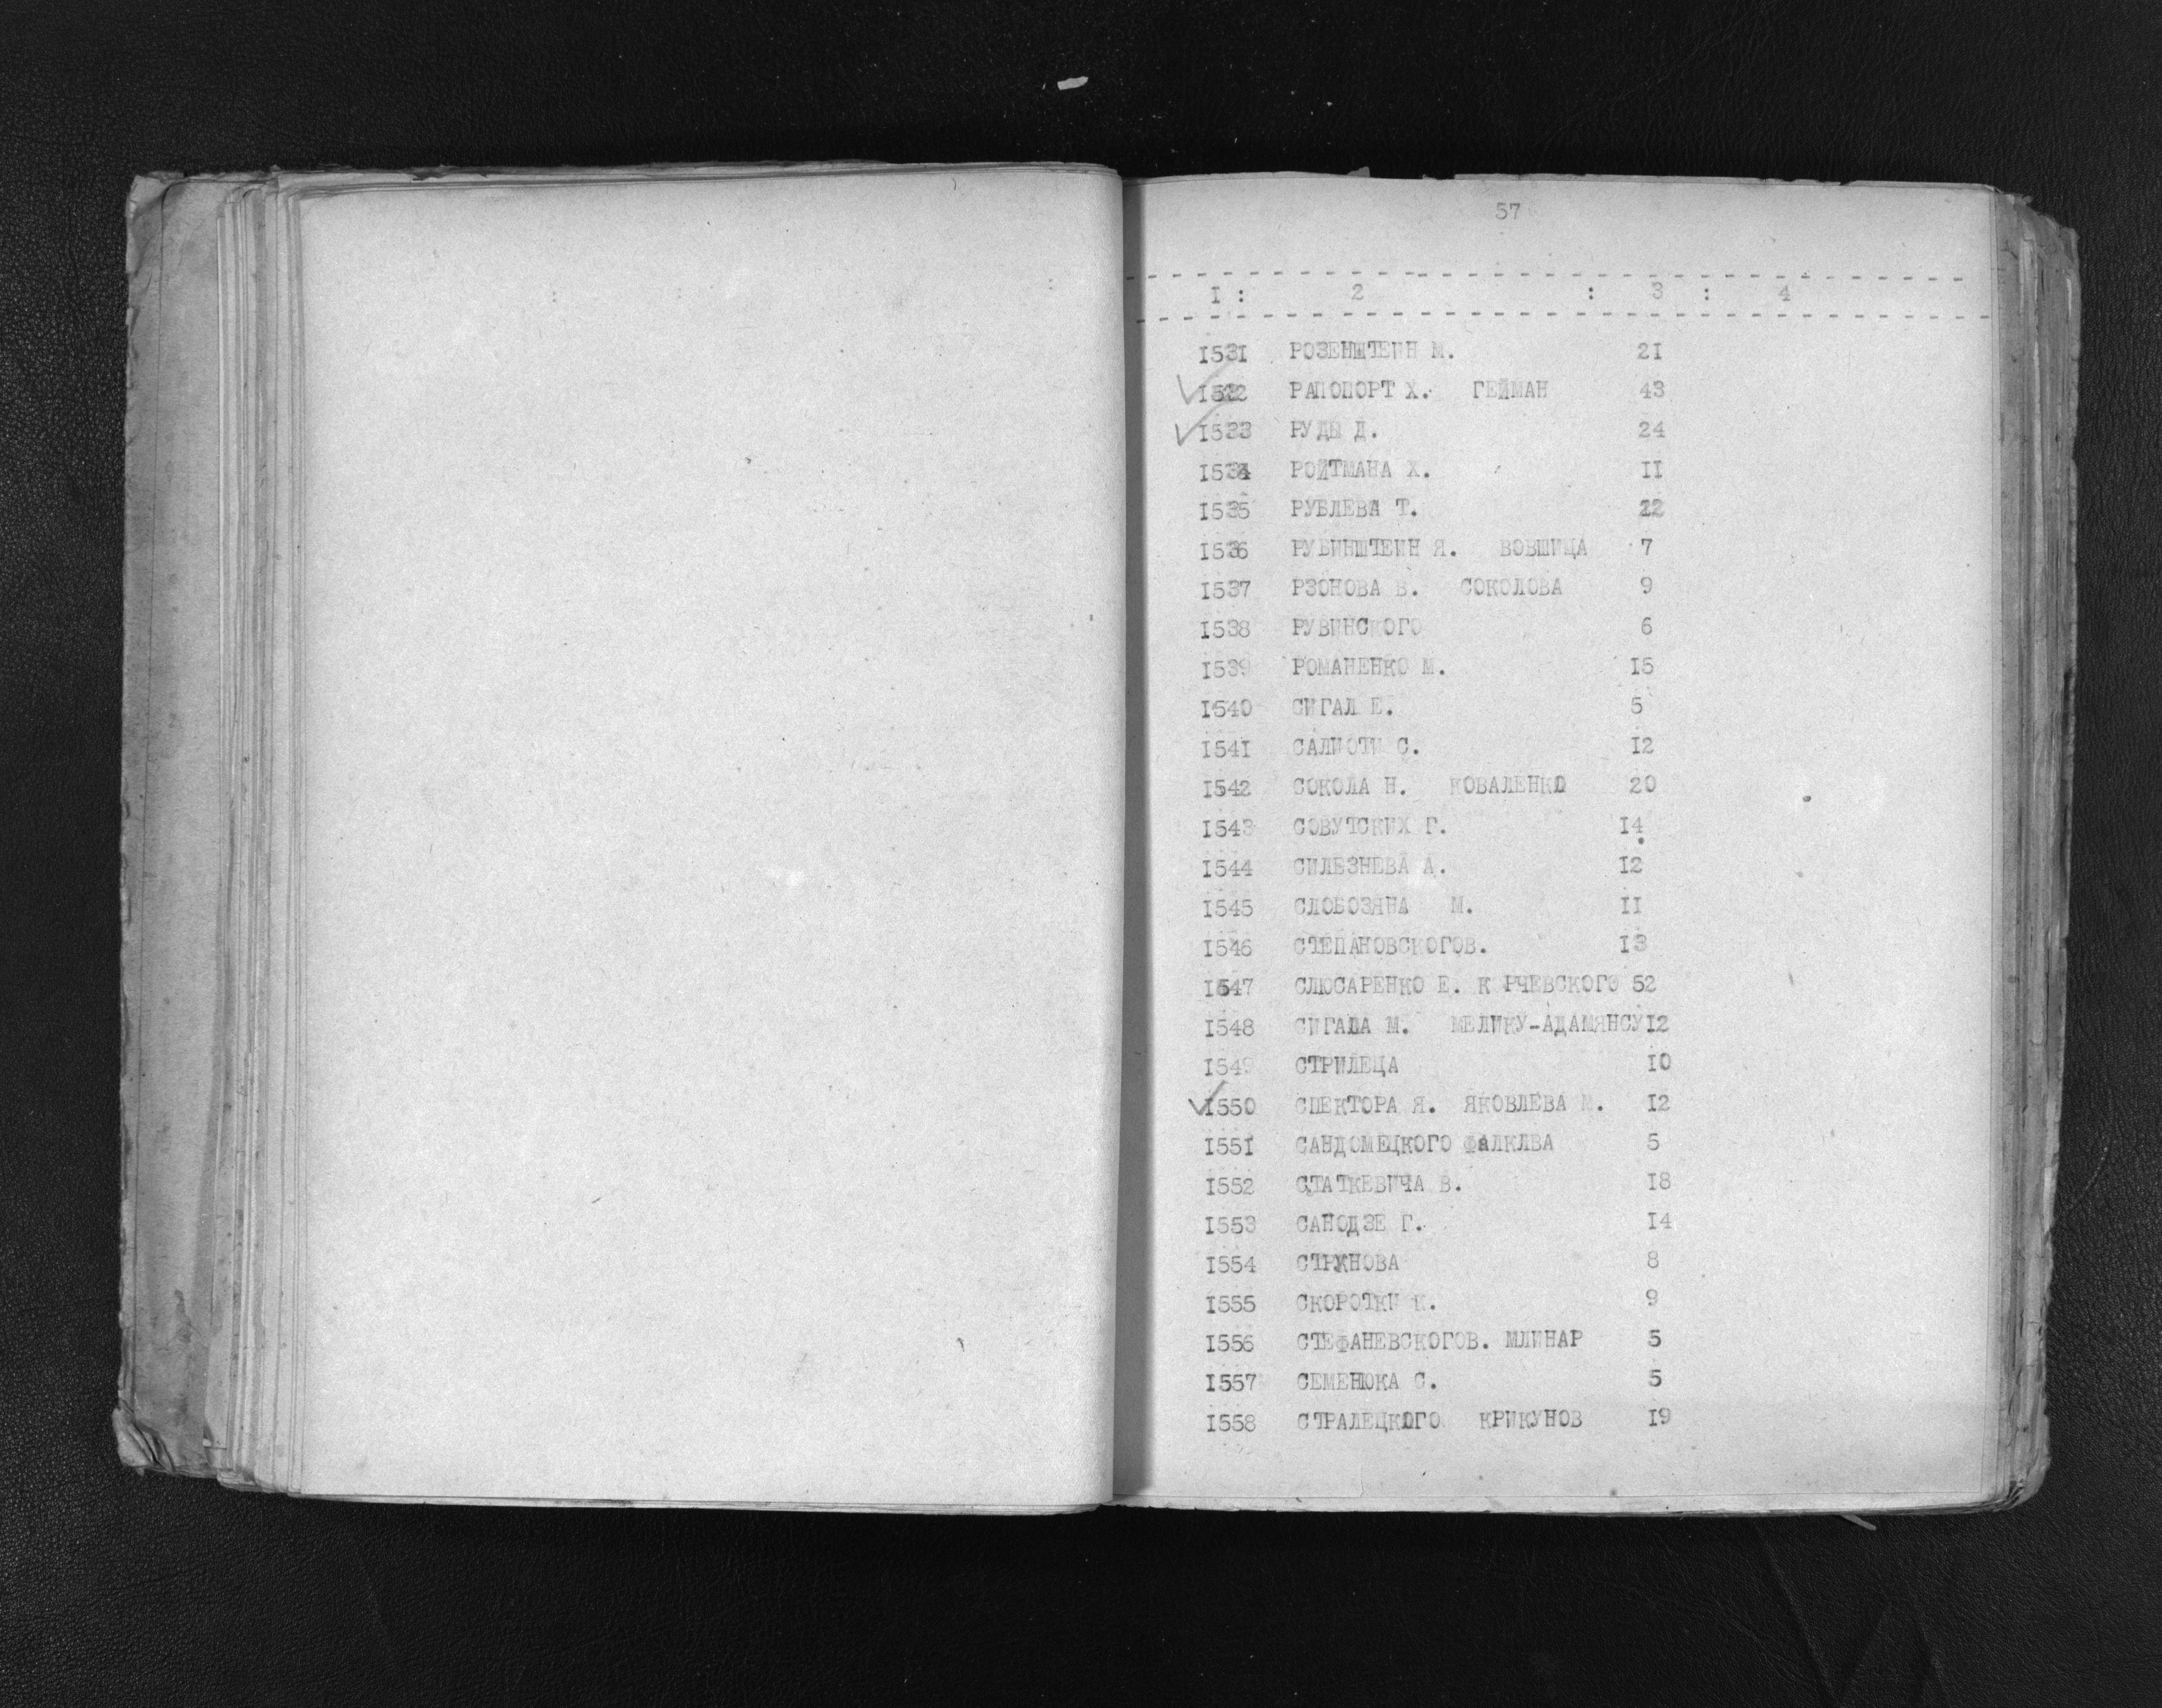 57
I : 2 : 3 : 4
I53I РОЗЕНШТЕИН М. 2I
I532 РАПОПОРТ Х. ГЕЙМАН 43
I533 РУДЫ Д. 24
I534 РОЙТМАНА Х. II
I535 РУБЛЕВА Т. 22
I536 РУБИНШТЕИН Я. ВОВШИЦА 7
I537 РЗОНОВА В. СОКОЛОВА 9
I538 РУВИНСКОГО 6
I539 РОМАНЕНКО М. I5
I540 СИГАЛ Е. 5
I54I САЛИОТИ С. I2
I542 СОКОЛА Н. КОВАЛЕНКО 20
I543 СОВУТСКИХ Г. I4
I544 СИЛЕЗНЕВА А. I2
I545 СЛОБОЗЯНА М. II
I546 СТЕПАНОВСКОГОВ. I3
I547 СЛЮСАРЕНКО Е. К РЧЕВСКОГО 52
I548 СИГАЛА М. МЕЛИКУ-АДАМЯНСУ I2
I549 СТРИЛЕЦА I0
I550 СПЕКТОРА Я. ЯКОВЛЕВА М. I2
I55I САНДОМЕЦКОГО ФАЛКЛВА 5
I552 СТАТКЕВИЧА В. I8
I553 САНОДЗЕ Г. I4
I554 СТРУНОВА 8
I555 СКОРОТКИ К. 9
I556 СТЕФАНЕВСКОГОВ. МЛИНАР 5
I557 СЕМЕНЮКА С. 5
I558 СТРАЛЕЦКОГО КРИКУНОВ I9